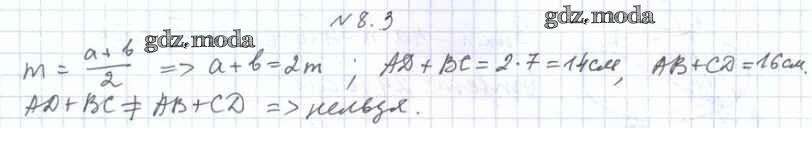 № 8.3
gdz.moda
gdz.moda
m = a + b / 2 => a + b = 2m ; AD + BC = 2·7 = 14 см, AB + CD = 16 см.
AD + BC ≠ AB + CD => нельзя.